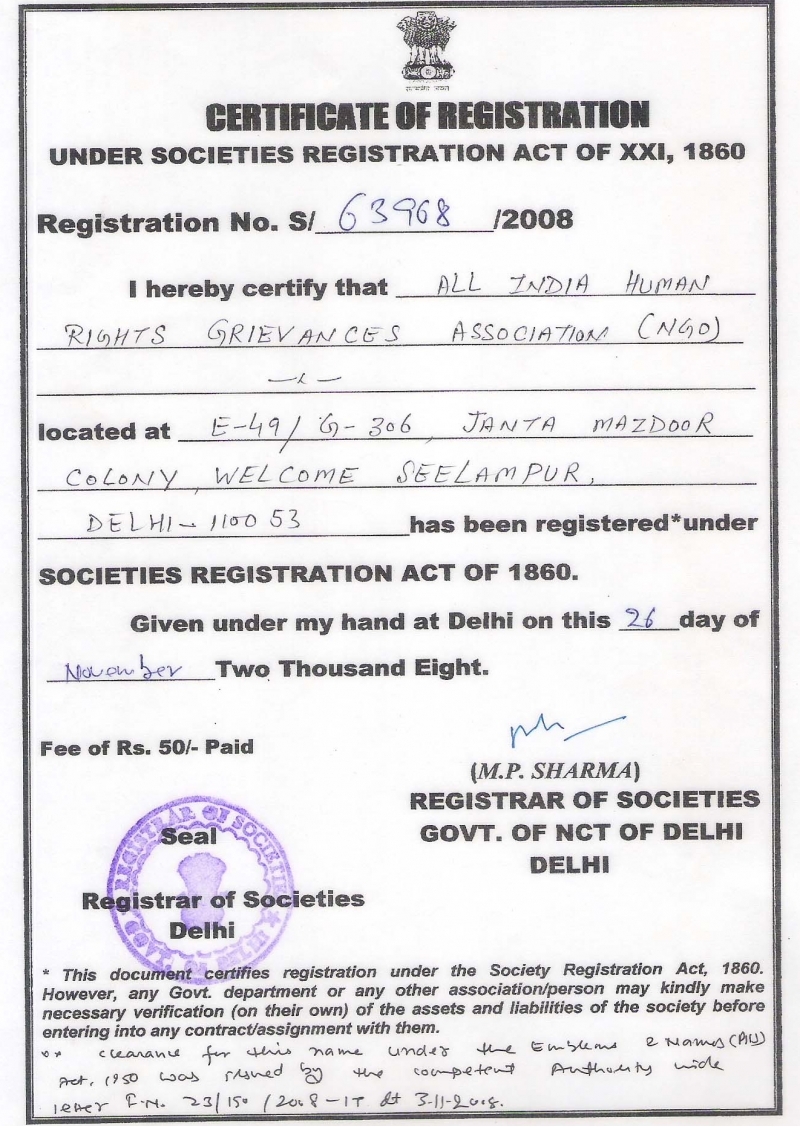 सत्यमेव जयते
CERTIFICATE OF REGISTRATION
UNDER SOCIETIES REGISTRATION ACT OF XXI, 1860
Registration No. S/ 63968 /2008
I hereby certify that ALL INDIA HUMAN
RIGHTS GRIEVANCES ASSOCIATION (NGO)
located at E-49/G-306, JANTA MAZDOOR
COLONY, WELCOME SEELAMPUR,
DELHI-110053 has been registered*under
SOCIETIES REGISTRATION ACT OF 1860.
Given under my hand at Delhi on this 26 day of
November Two Thousand Eight.
Fee of Rs. 50/- Paid
(M.P. SHARMA)
REGISTRAR OF SOCIETIES
GOVT. OF NCT OF DELHI
DELHI
REGISTRAR OF SOCIETIES
Seal
Registrar of Societies
Delhi
* This document certifies registration under the Society Registration Act, 1860.
However, any Govt. department or any other association/person may kindly make
necessary verification (on their own) of the assets and liabilities of the society before
entering into any contract/assignment with them.
** clearance for this name under the Emblems & Names (PIU)
Act, 1950 was issued by the competent Authority vide
letter F.N. 23/150/2008-IT dt 3-11-2008.